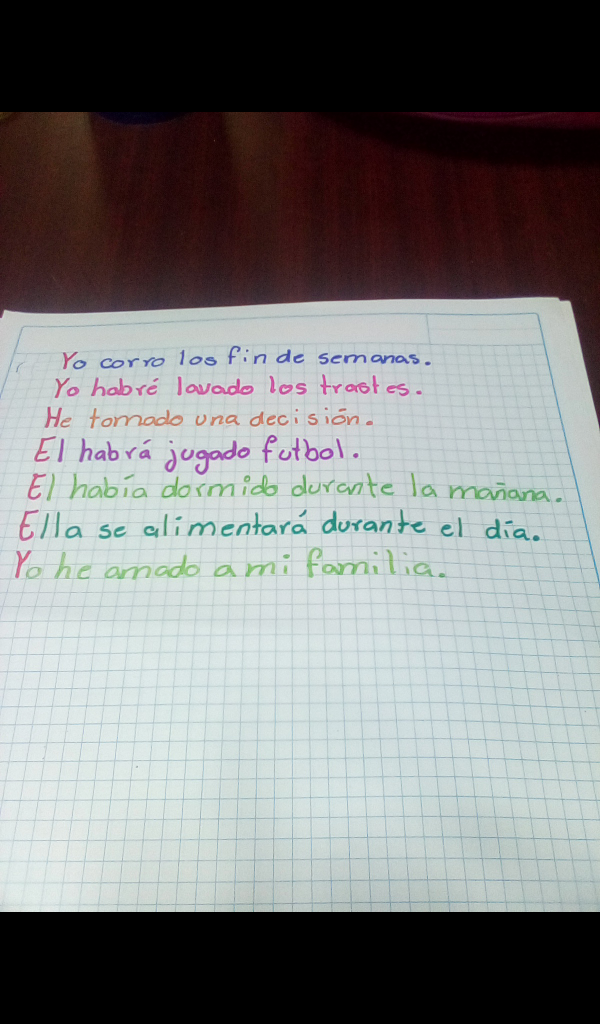 Yo corro los fin de semanas.
Yo habré lavado los trastes.
He tomado una decisión.
El habrá jugado futbol.
El había dormido durante la mañana.
Ella se alimentará durante el día.
Yo he amado a mi familia.